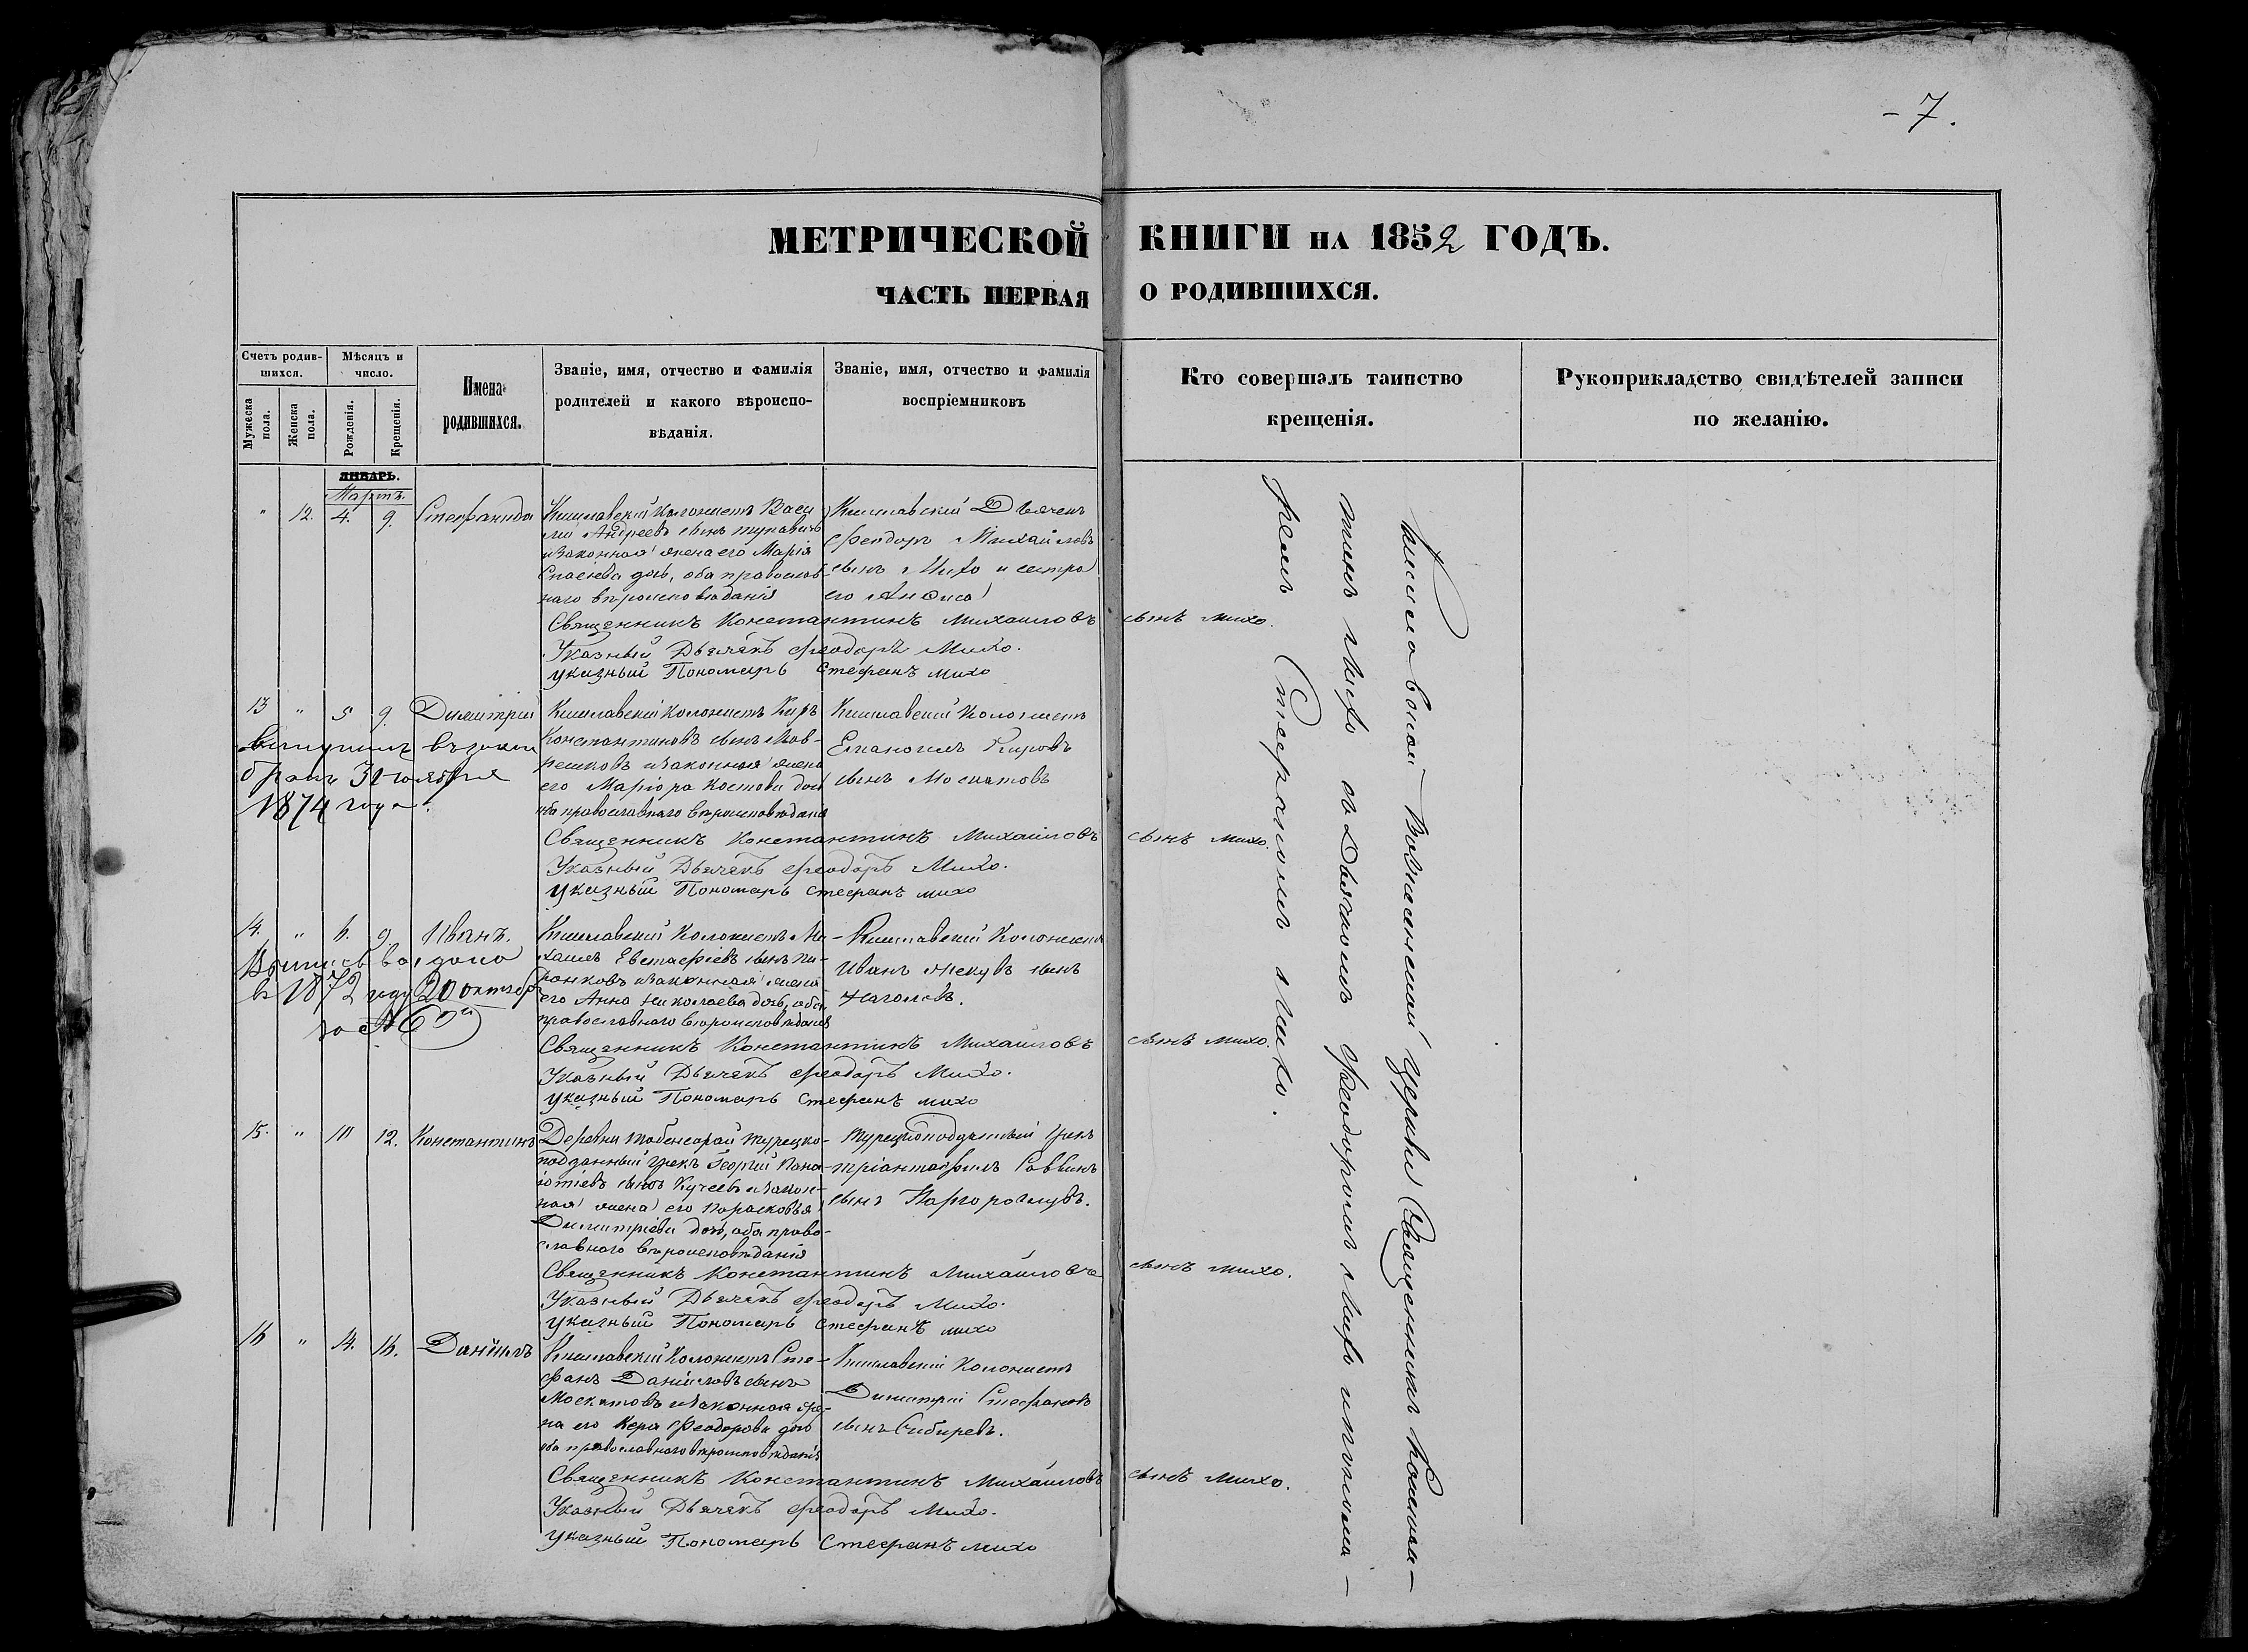 - 7.
МЕТРИЧЕСКОЙ КНИГИ НА 1852 ГОДЪ.
ЧАСТЬ ПЕРВАЯ О РОДИВШИХСЯ.
Счетъ родив-
шихся.
Мѣсяцъ и
число.
Имена
родившихся.
Званіе, имя, отчество и фамилія
родителей и какого вѣроиспо-
вѣданія.
Званіе, имя, отчество и фамилія
воспріемниковъ
Кто совершалъ таинство
крещенія.
Рукоприкладство свидѣтелей записи
по желанію.
Мужеска
пола.
Женска
пола.
Рожденія.
Крещенія.
ЯНВАРЬ.
Мартъ.
" 12. 4. 9. Стефанида
Кишлавскій Колонистъ Васи
лій Андреевъ сынъ
и законная жена его Марія
Спасіева дочь, оба православ-
наго вѣроисповѣданія
Кишлавскій Дьячекъ
Феодоръ Михайловъ
сынъ Михо и сестра
его
Священникъ Константинъ Михаиловъ сынъ Михо.
Указный Дьячекъ Феодоръ Михо.
Указный Пономарь Стефанъ Михо
13 " 5 9. Димитрій
вступилъ въ закон
бракъ 31
1874 года.
Кишлавскій Колонистъ Киръ
Константиновъ сынъ Мав-
решковъ и законная жена
его Маріора Костова дочь
оба православнаго вѣроисповѣданія
Кишлавскій Колонистъ
Еманоилъ Кировъ
сынъ Москатовъ
Священникъ Константинъ Михаиловъ сынъ Михо.
Указный Дьячекъ Феодоръ Михо.
Указный Пономарь Стефанъ Михо
14. " 6. 9. Иванъ.
въ 1872 году 20 октября
за № 6
Кишлавскій Колонистъ Ми-
хаилъ Евстафіевъ сынъ
и законная жена
его Анна Николаева дочь, оба
православнаго вѣроисповѣданія
Кишлавскій Колонистъ
Иванъ Жековъ сынъ
Священникъ Константинъ Михаиловъ сынъ Михо.
Указный Дьячекъ Феодоръ Михо.
Указный Пономарь Стефанъ Михо
15. " 10 12. Константинъ
Деревни Турецко-
подданный Грекъ Георгій Пана-
іотіевъ сынъ Кучеевъ и закон-
ная жена его Парасковья
Димитріева дочь, оба право-
славнаго вѣроисповѣданія
Турецкоподданный Грекъ
Тріантафилъ Саввинъ
сынъ
Священникъ Константинъ Михаиловъ сынъ Михо.
Указный Дьячекъ Феодоръ Михо.
Указный Пономарь Стефанъ Михо
16 " 14. 16. Даніилъ
Кишлавскій Колонистъ Сте-
фанъ Даніиловъ сынъ
Москатовъ и законная же-
на его Кера Феодорова дочь
оба православнаго вѣроисповѣданія
Кишлавскій Колонистъ
Димитрій Стефановъ
сынъ Сибиревъ.
Священникъ Константинъ Михаиловъ сынъ Михо.
Указный Дьячекъ Феодоръ Михо.
Указный Пономарь Стефанъ Михо
Кишлавской Вознесенской церкви Священникъ Констан-
тинъ Михо съ Дьячкомъ Феодоромъ Михо и Понома-
ремъ Стефаномъ Михо.